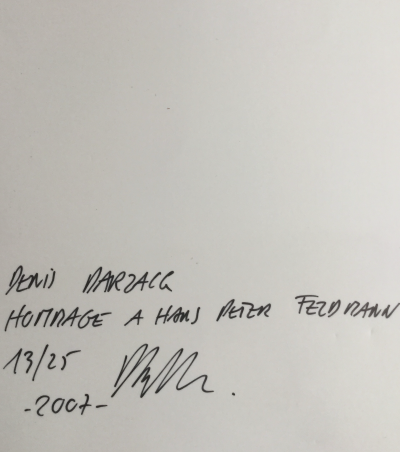 DENIS DARZACQ
HOMMAGE A HANS PETER FELDMANN
13/25
-2007-